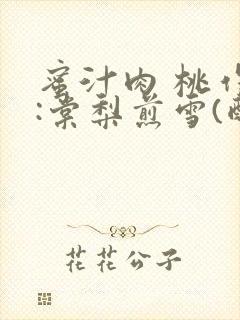 蜜汁肉桃
:棠梨煎雪(
花花公子